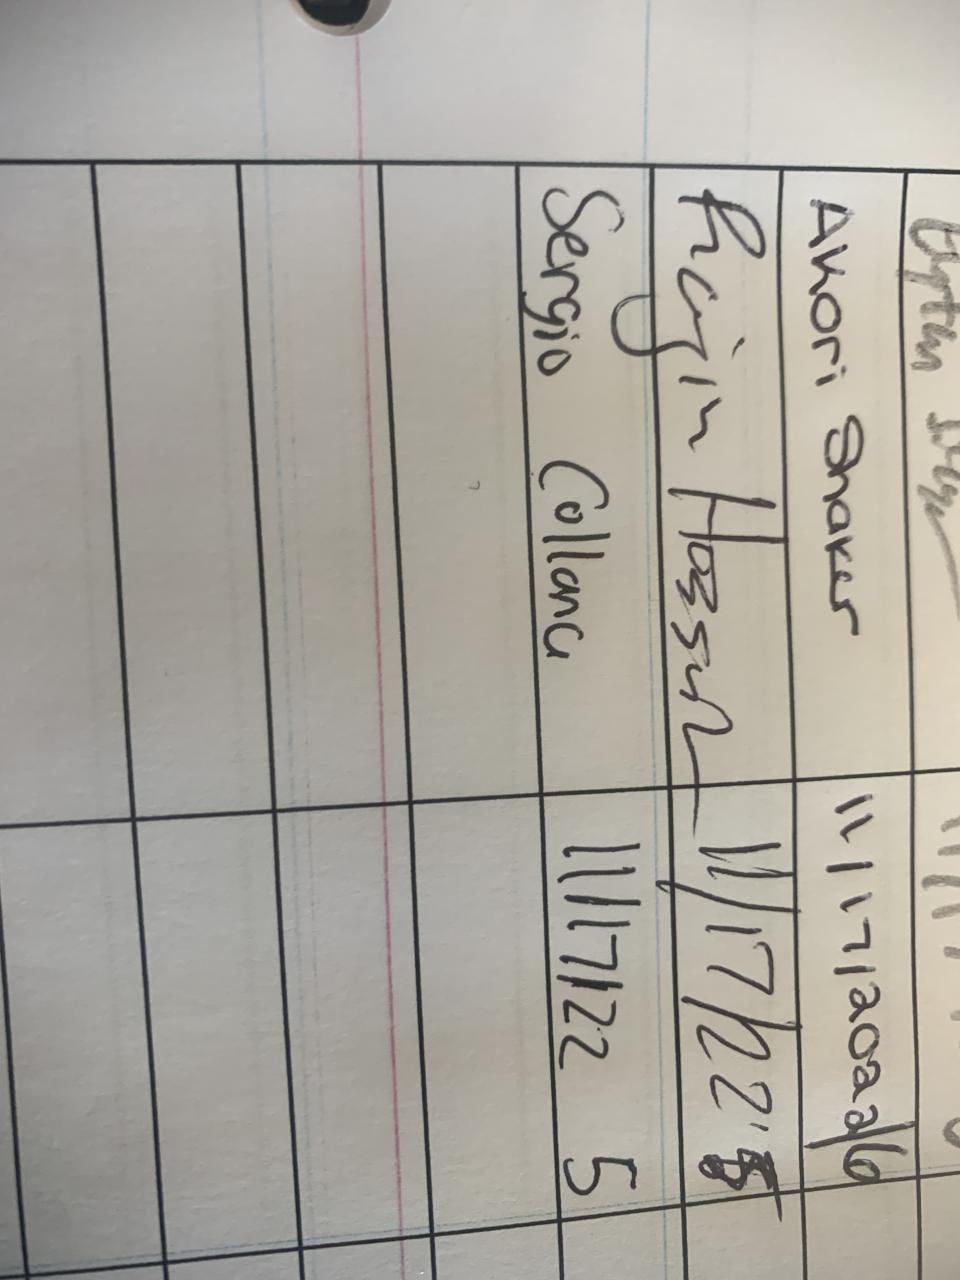 Akori Shaker 11/17/2022/6
Rajin Hossen 11/17/22
Sergio Collana 11/17/22 5